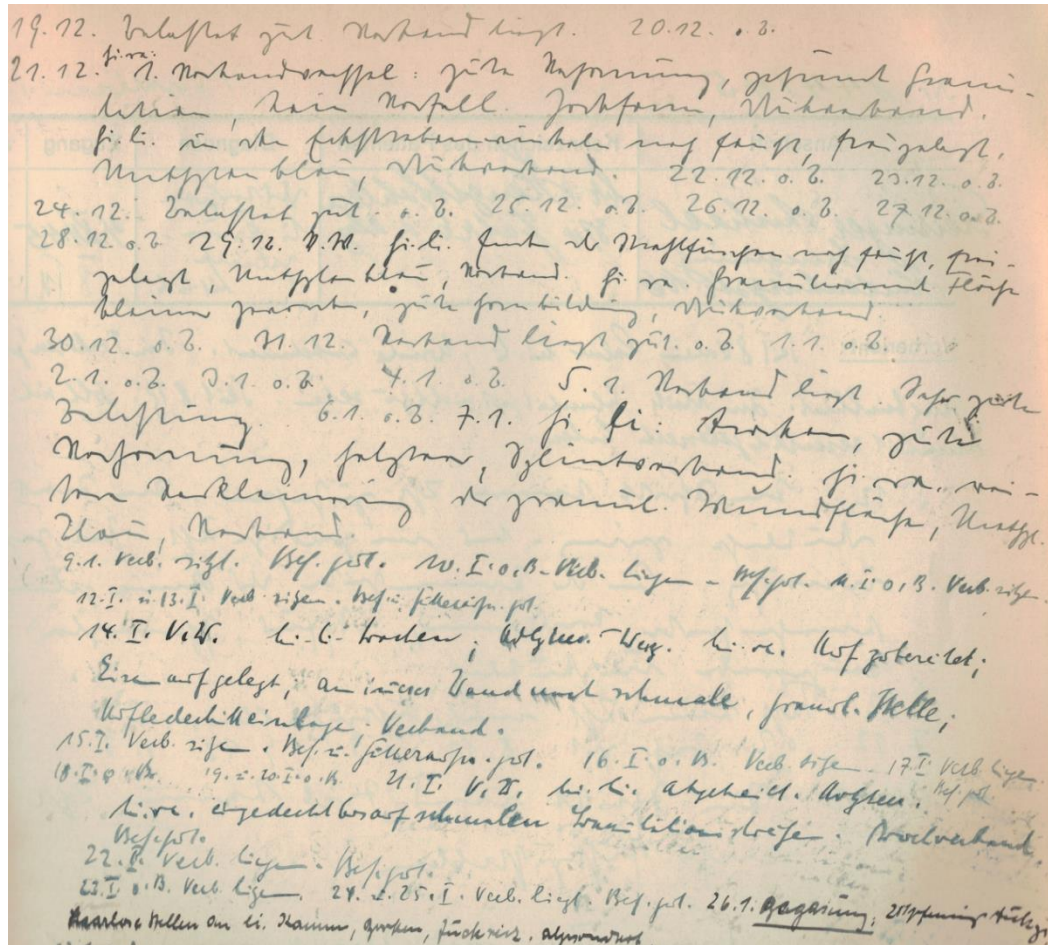 19.12. belastet gut Verband liegt. 20.12. o.B.
21.12. hi.re: 1. Verbandwechsel: gute Verhornung, gesunde Granu-
lation, kein Vorfall. Jodoform, Druckverband.
hi.li. in den Eckstrebenwinkeln noch feucht, freigelegt,
Methylenblau, Druckverband. 22.12. o.B. 23.12. o.B.
24.12. belastet gut. o.B. 25.12. o.B. 26.12. o.B. 27.12. o.B.
28.12 o.B. 29.12. V.W. hi.li. der Strahlfurchen noch feucht, frei-
gelegt, Methylenblau, Verband. hi re. Granulierende Fläche
kleiner geworden, gute Hornbildung, Druckverband.
30.12. o.B. 31.12. Verband liegt gut. o.B. 1.1. o.B.
2.1. o.B. 3.1. o.B. 4.1. o.B. 5.1. Verband liegt. Sehr gute
Belastung. 6.1. o.B. 7.1. hi. li: trocken, gute
Verhornung, Holzteer, Splintverband hi. re. wei-
tere Verkleinerung der granul. Wundfläche, Methyl.
blau, Verband.
9.1. Verb. sitzt. Bef. gut. 10.I. o.B. Verb. liegen - Bef. gut. 11.I. o.B. Verb. sitzen.
12.I. u. 13.I. Verb sitzen. Bef. u. Futteraufn. gut.
14.I. V.W. hi. li. trocken; Holzteer-Werg. hi. re. Huf zubereitet;
Eisen aufgelegt; am Wand noch schmale, granul. Stelle;
Huflederkitteinlage; Verband.
15.I. Verb. sitzen. Bef. u. Futteraufn. gut. 16.I. o.B. Verb. sitzen 17.I. Verb. liegen.
18.I. o.B. 19. u. 20.I. o.B. 21.I. V.W. hi. li. abgeheilt. Holzteer. Bef. gut
hi. re. bis auf schmalen Granulationsstreifen. Druckverband.
Bef. gut.
22.I. Verb. liegen. Bef. gut.
23.I. o.B. Verb. liegen. 24. u. 25.I. Verb. liegt. Bef. gut. 26.1. Begasung,
Haarlose Stellen am li. Kamm, Juckreiz. abgesondert